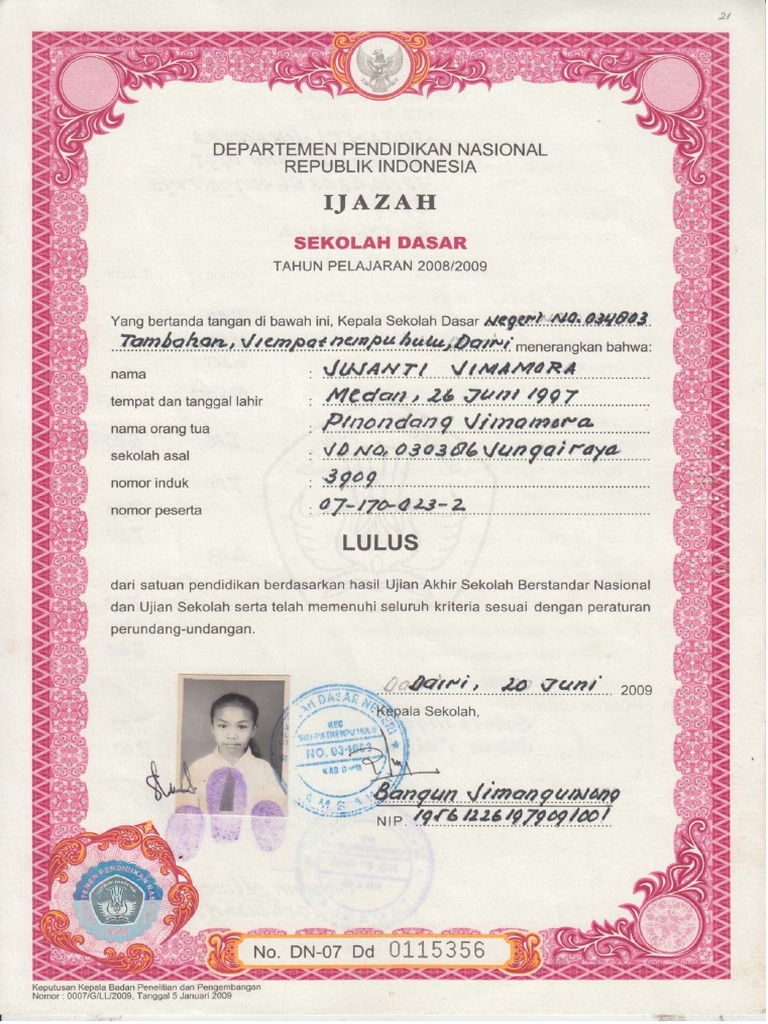 21
DEPARTEMEN PENDIDIKAN NASIONAL
REPUBLIK INDONESIA
IJAZAH
SEKOLAH DASAR
TAHUN PELAJARAN 2008/2009
Yang bertanda tangan di bawah ini, Kepala Sekolah Dasar Negeri NO. 034803
Tambahan, Siempatnempuhulu, Dairi menerangkan bahwa:
nama : SUSANTI SIMAMORA
tempat dan tanggal lahir : Medan, 26 Juni 1997
nama orang tua : Pinondang Simamora
sekolah asal : SD NO. 030386 Sungairaya
nomor induk : 3909
nomor peserta : 07-170-023-2
LULUS
dari satuan pendidikan berdasarkan hasil Ujian Akhir Sekolah Berstandar Nasional
dan Ujian Sekolah serta telah memenuhi seluruh kriteria sesuai dengan peraturan
perundang-undangan.
Dairi, 20 Juni 2009
Kepala Sekolah,
SEKOLAH DASAR NEGERI
KEC
SIEMPATNEMPU HULU
NO. 034803
KAB DAIRI
Bangun Simangunsong
NIP. 195612261979091001
No. DN-07 Dd 0115356
Keputusan Kepala Badan Penelitian dan Pengembangan
Nomor : 0007/G/LL/2009, Tanggal 5 Januari 2009